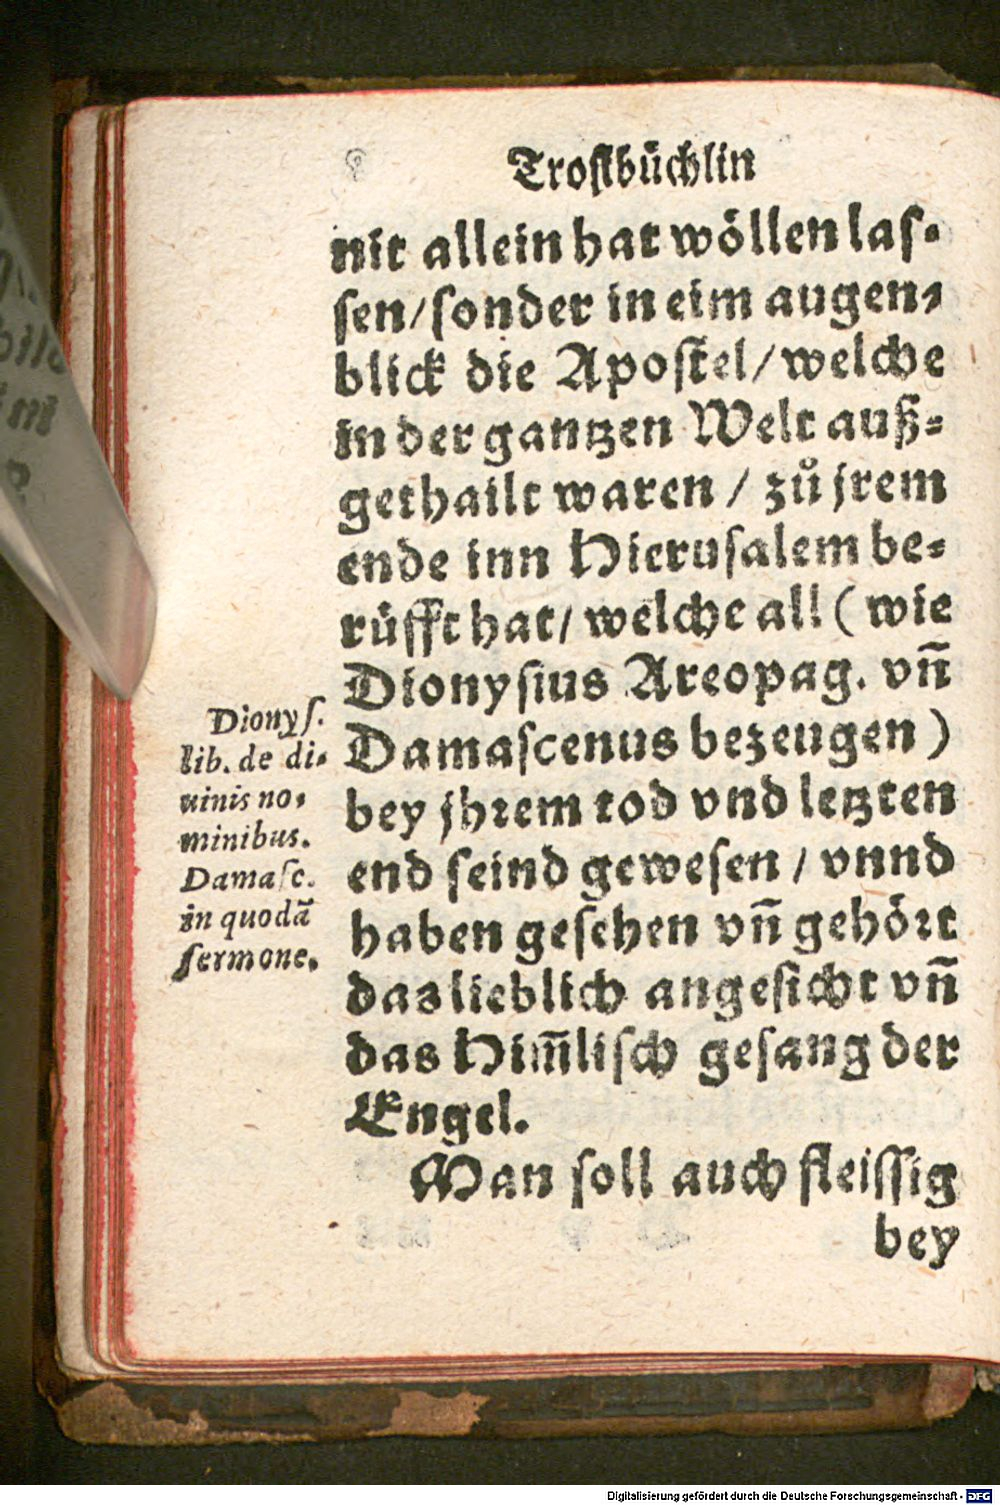 Trostbüchlin
nit allein hat wöllen las-
sen/sonder in eim augen-
blick die Apostel/welche
in der gantzen Welt auß-
gethailt waren / zů jrem
ende inn Hierusalem be-
rüfft hat/ welche all (wie
Dionysius Areopag. vñ
Damascenus bezeugen)
bey jhrem tod vnd letzten
end seind gewesen / vnnd
haben gesehen vñ gehört
das lieblich angesicht vñ
das Him̃lisch gesang der
Engel.
Man soll auch fleissig
bey
Dionys.
lib. de di-
uinis no-
minibus.
Damasc.
in quodã
sermone.
Digitalisierung gefördert durch die Deutsche Forschungsgemeinschaft - DFG